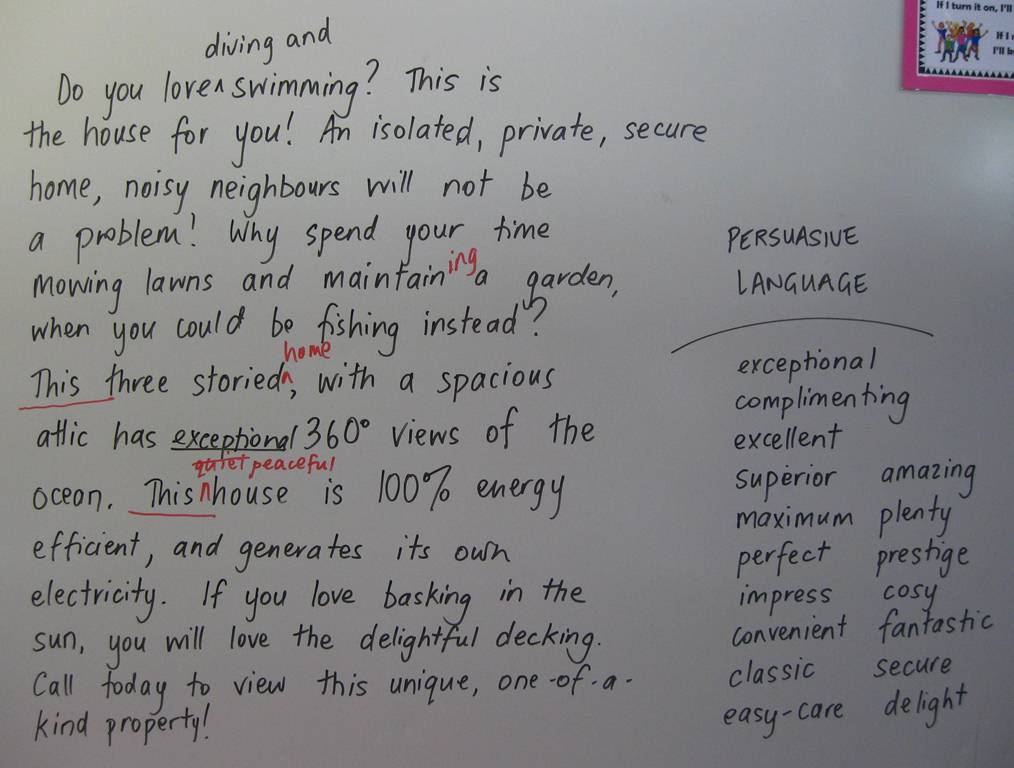 diving and
Do you love ^ swimming? This is
the house for you! An isolated, private, secure
home, noisy neighbours will not be
a problem! Why spend your time
mowing lawns and maintaining a garden,
when you could be fishing instead?
home
This three storied^, with a spacious
attic has exceptional 360° views of the
quiet peaceful
ocean. This ^ house is 100% energy
efficient, and generates its own
electricity. If you love basking in the
sun, you will love the delightful decking.
Call today to view this unique, one-of-a-
kind property!
PERSUASIVE
LANGUAGE
exceptional
complimenting
excellent
superior amazing
maximum plenty
perfect prestige
impress cosy
convenient fantastic
classic secure
easy-care delight
If I turn it on, I'll
If I
I'll b